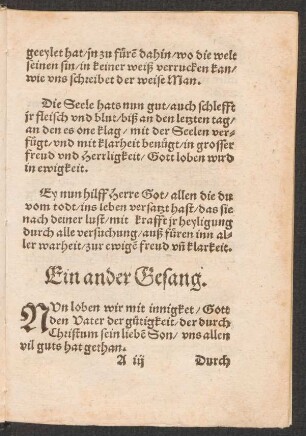 geeylet hat/jn zu fürē dahin/wo die welt
seinen sin/in keiner weiß verrucken kan/
wie vns schreibet der weise Man.
Die Seele hats nun gut/auch schlefft
jr fleisch vnd blut/biß an den letzten tag/
an den es one klag/mit der Seelen ver-
fügt/vnd mit klarheit benügt/in grosser
freud vnd Herrligkeit/Gott loben wird
in ewigkeit.
Ey nun hilff Herre Got/allen die du
vom todt/ins leben versatzt hast/das sie
nach deiner lust/mit krafft jr heyligung
durch alle versuchung/auß füren inn al-
ler warheit/zur ewigē freud vn̄ klarkeit.
Ein ander Gesang.
NVn loben wir mit innigket/Gott
den Vater der gütigkeit/der durch
Christum sein liebē Son/vns allen
vil guts hat gethan.
A iij Durch